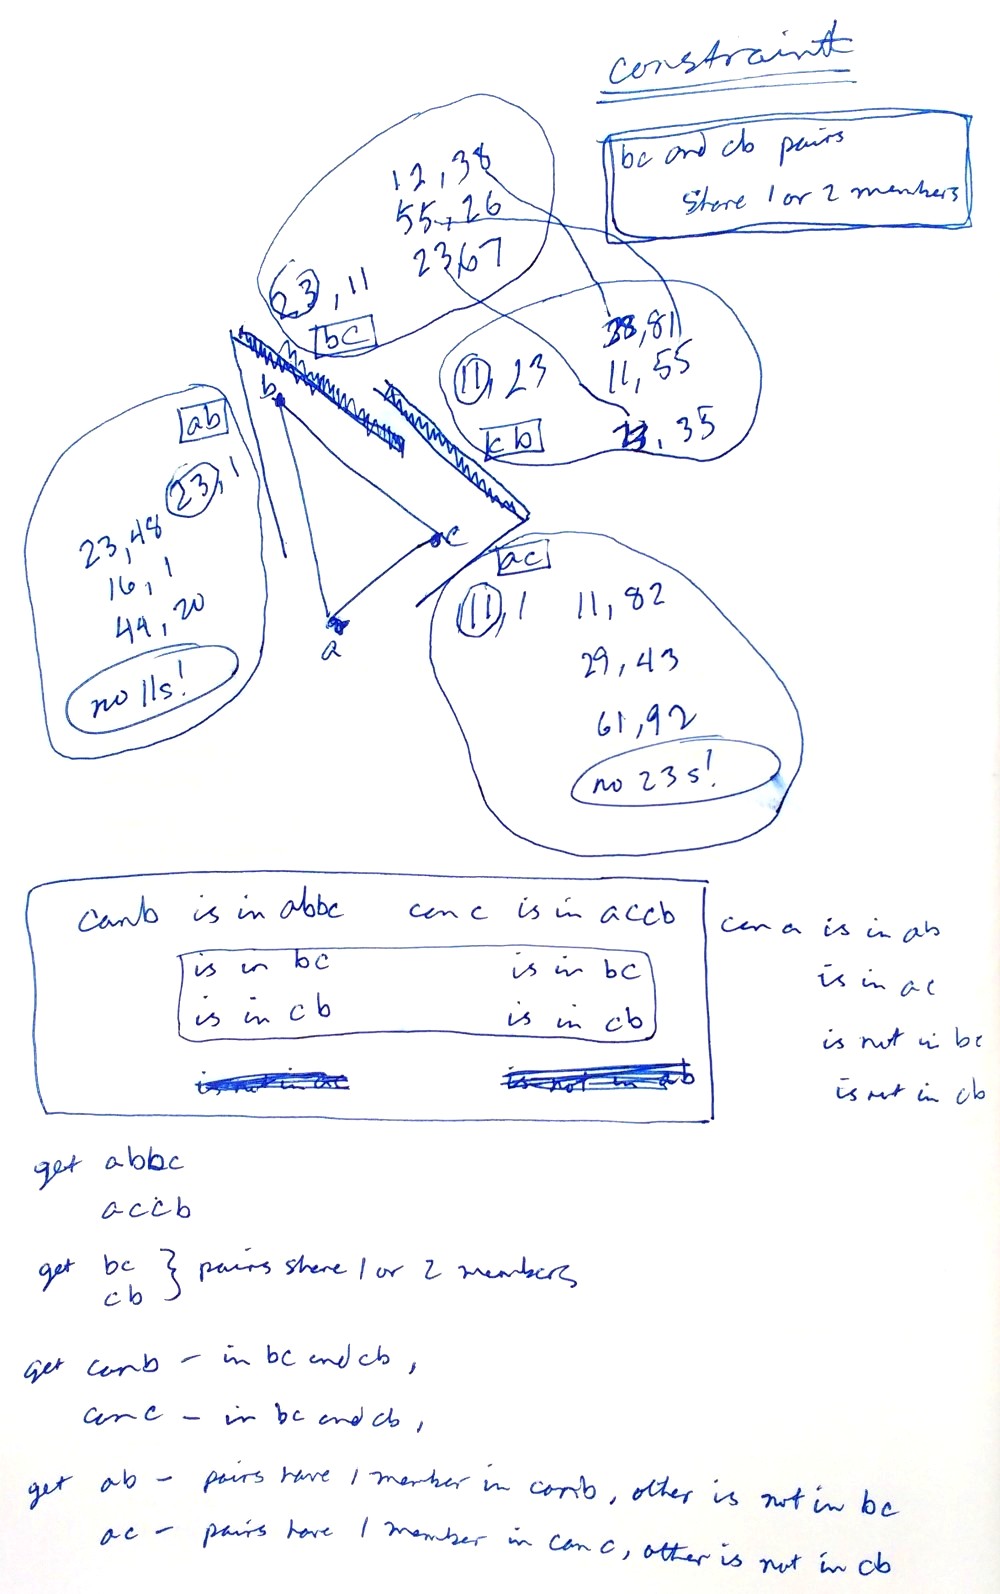 constraint
bc and cb pairs
share 1 or 2 members
12, 38
55, 26
23, 67
23, 11
bc
38, 81
11, 23
11, 55
cb
, 35
b
ab
23, 1
23, 48
16, 1
44, 20
no 11s!
c
a
ac
11, 1
11, 82
29, 43
61, 92
no 23s!
can b is in abbc can c is in accb
can a is in ab
is in bc is in bc
is in ac
is in cb is in cb
is not in bc
is not in ac is not in ab
is not in cb
get abbc
accb
get bc } pairs share 1 or 2 members
cb
get can b – in bc and cb,
can c – in bc and cb,
get ab – pairs have 1 member in can b, other is not in bc
ac – pairs have 1 member in can c, other is not in cb